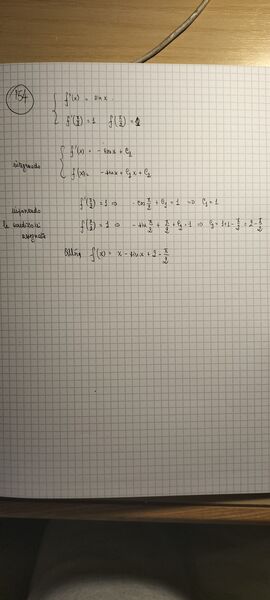 154
f''(x) = sin x.
f'(π/2) = 1 f(π/2) = 1
integrando
f'(x) = - cos x + c₁
f(x) = - sin x + c₁x + c₂
imponendo le condizioni assegnate
f'(π/2) = 1 ⇒ - cos π/2 + c₁ = 1 ⇒ c₁ = 1
f(π/2) = 1 ⇒ - sin π/2 + π/2 + c₂ = 1 ⇒ c₂ = 1+1-π/2 = 2-π/2
f(x) = x - sin x + 2 - π/2